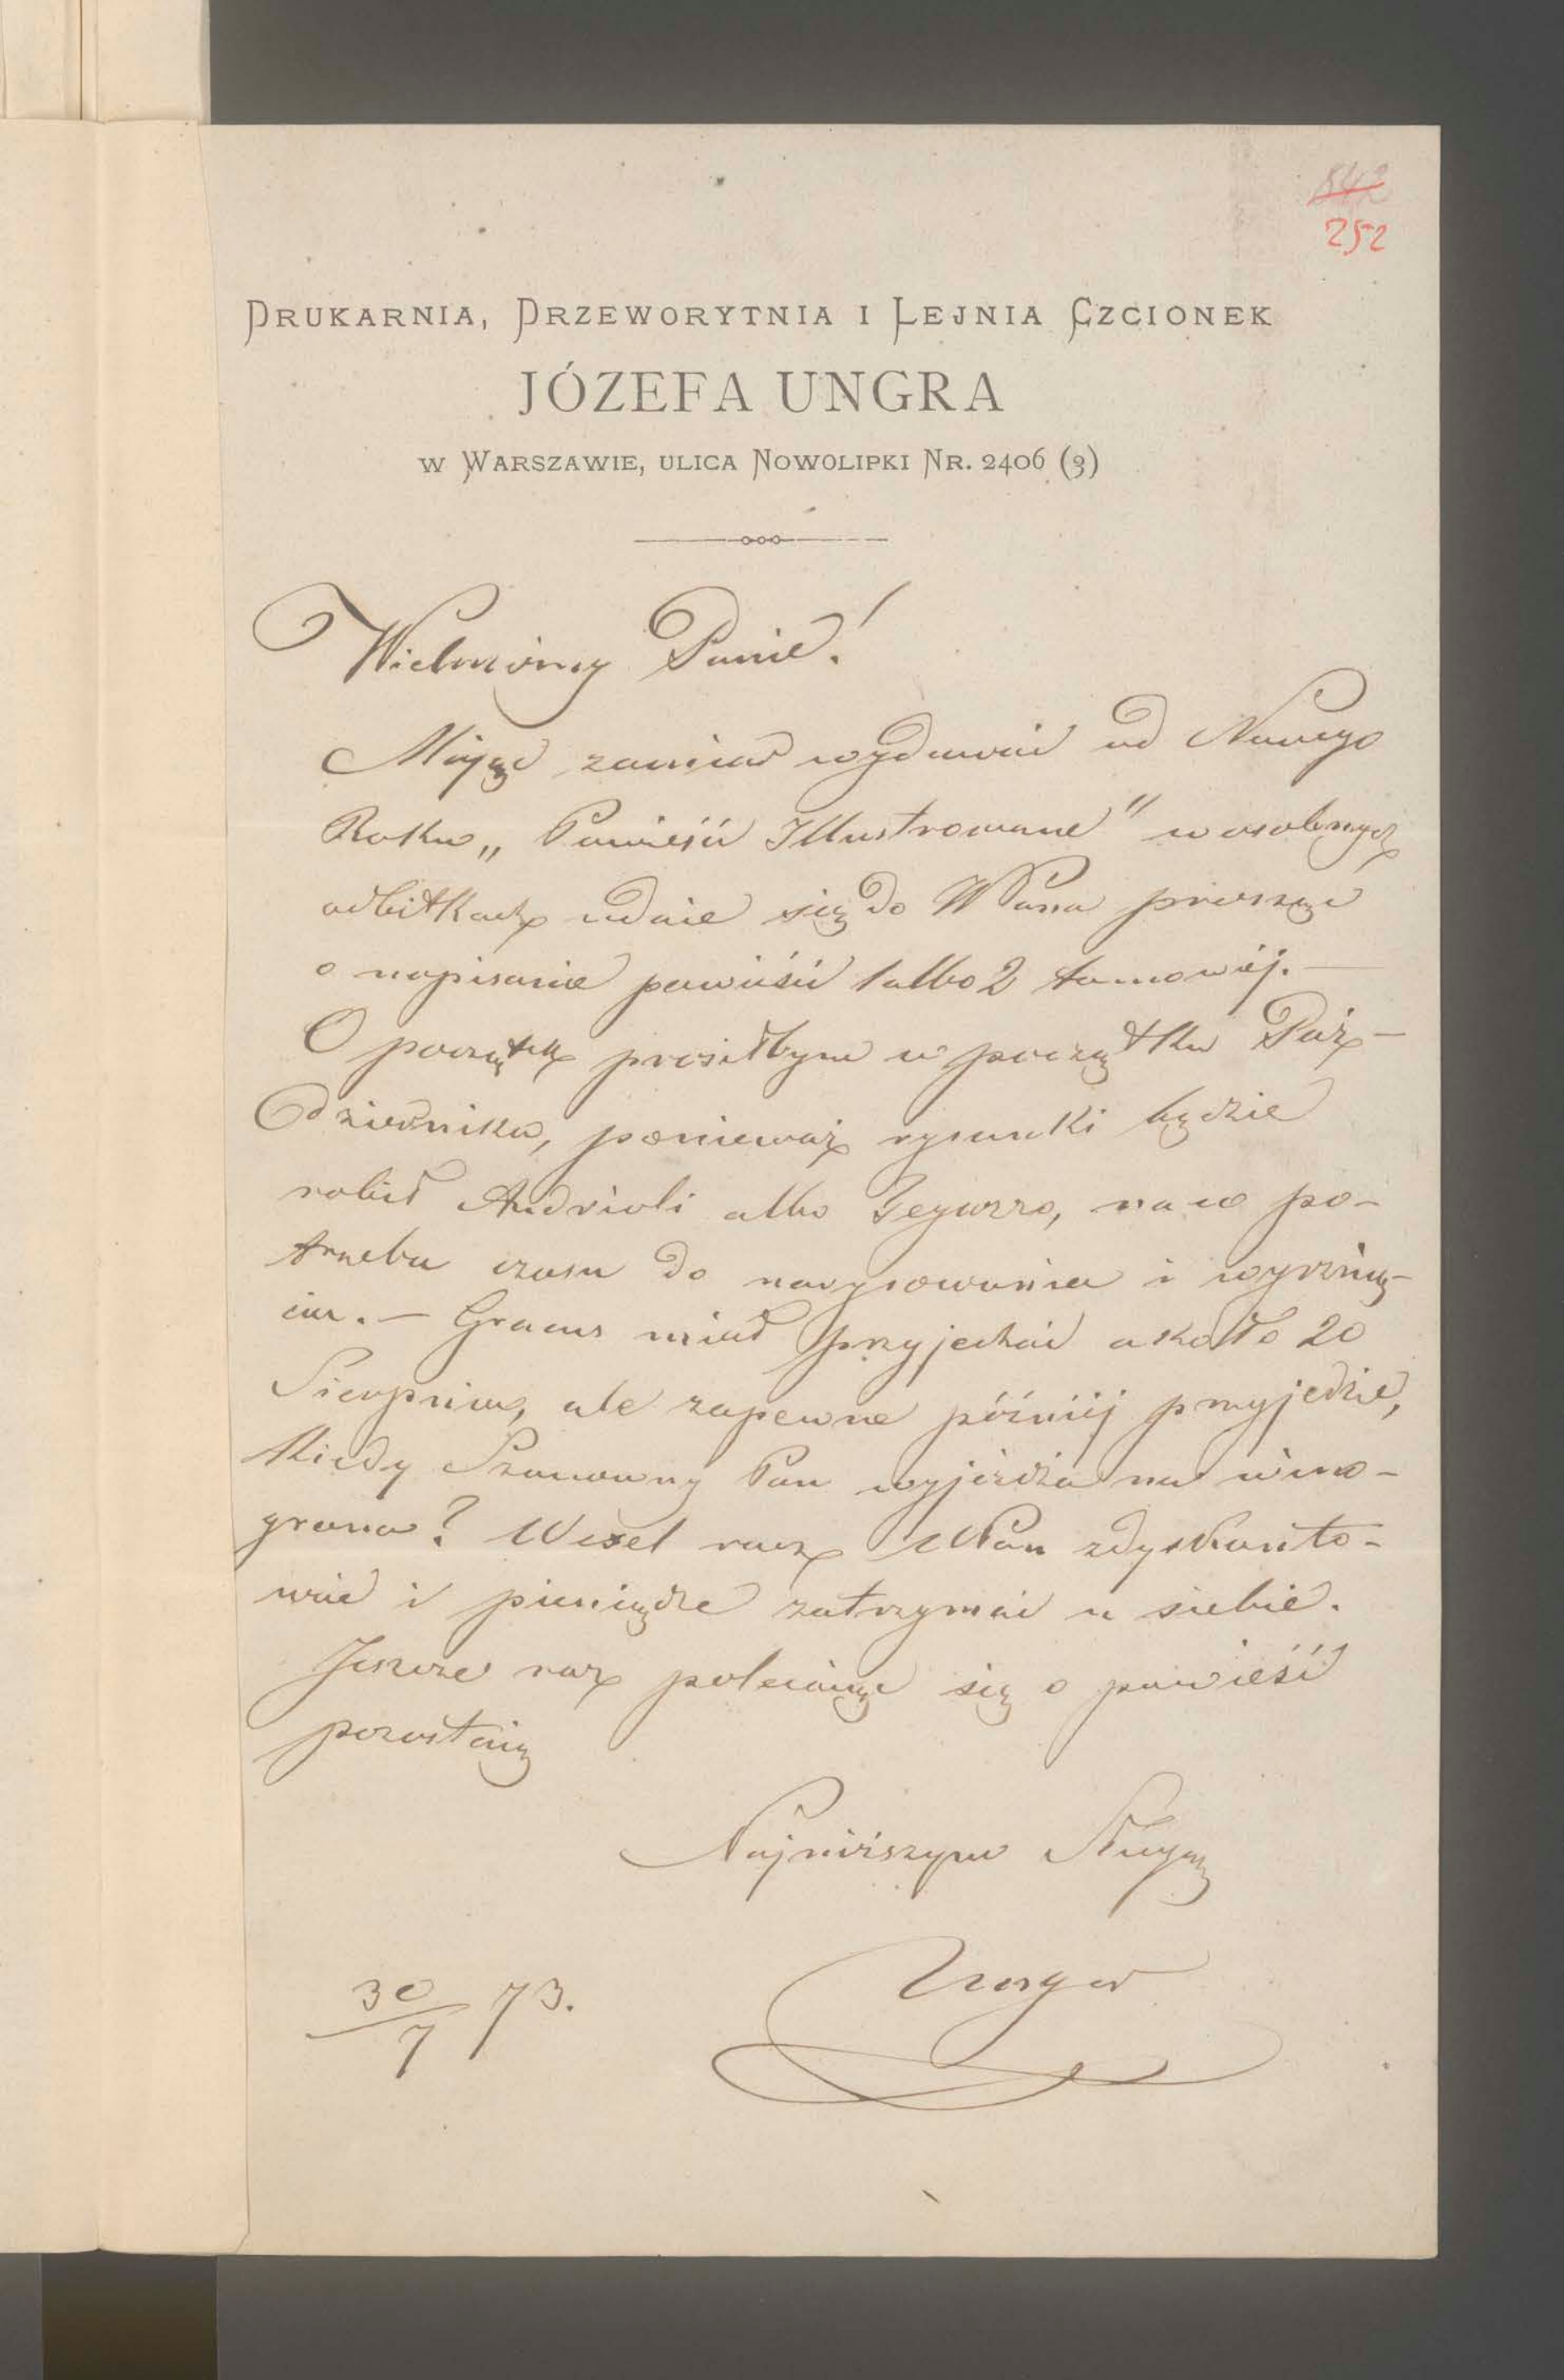 842
252
DRUKARNIA, DRZEWORYTNIA I LEJNIA CZCIONEK
JÓZEFA UNGRA
W WARSZAWIE, ULICA NOWOLIPKI NR. 2406 (3)
Wielmożny Panie!
Mając zamiar wydawać od Nowego
Roku „Powieści Illustrowane" w osobnych
odbitkach udaie się do WPana prosząc
o napisanie powieści 1 albo 2 tomowéj. —
O początek prosiłbym w początku Paź-
dziernika, ponieważ rysunki będzie
robił Andrioli albo Gegurzo, na co po-
trzeba czasu do narysowania i wyrznię-
cia. — Gracus miał przyjechać około 20
Sierpnia, ale zapewne późniéj przyjedzie,
Kiedy Szanowny Pan wyjeżdża na wino-
grona? Wexel racz WPan zdyskonto-
wać i pieniądze zatrzymać u siebie.
Jeszcze raz polecając się o powieść
pozostaię
Najniższym Sługą
Unger
30/7 73.